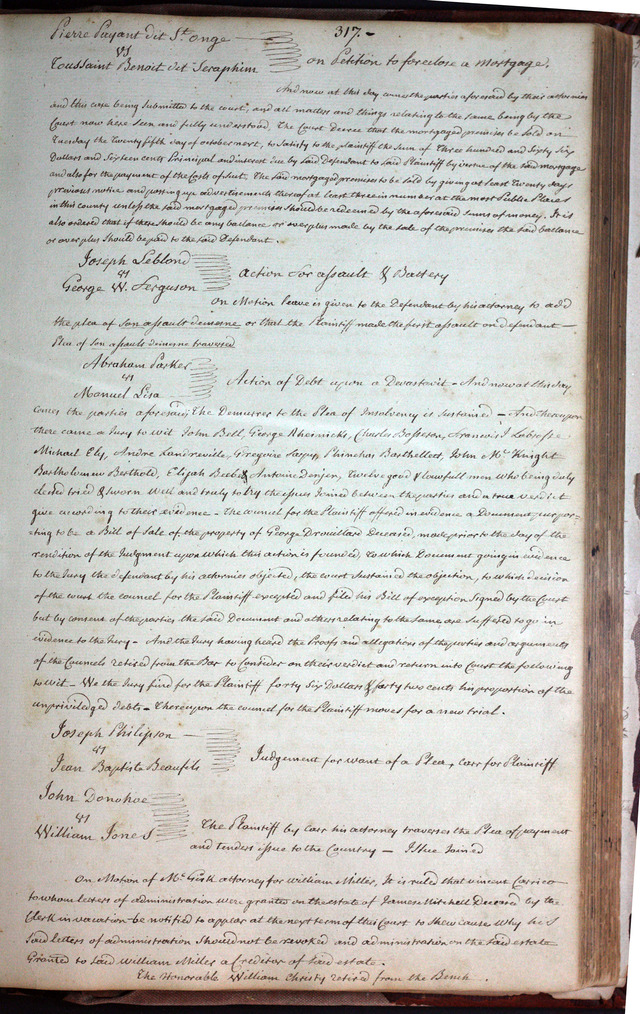 317.-
Pierre Payant dit St. onge
vs
Toussaint Benoit dit Seraphim
on Petition to foreclose a Mortgage.
And now at this day comes the parties aforesaid by their attornies
and this case being submitted to the court, and all matters and things relating to the same being by the
Court now here seen and fully understood. The Court Decree that the mortgaged premises be sold on
Tuesday the Twenty fifth day of october next, to satisfy to the plaintiff the sum of Three hundred and Sixty Six
Dollars and Sixteen cents Principal and interest due by said Defendant to said Plaintiff by virtue of the said mortgage
and also for the payment of the Costs of Suit. The said mortgaged premises to be sold by giving at least Twenty days
previous notice and posting up advertisements thereof at least three in number at the most Public Places
in this county unless the said mortgaged premises should be redeemed by the aforesaid sums of money. It is
also ordered that if there should be any ballance or over plus made by the sale of the premises the said ballance
or over plus should be paid to the said Defendant.
Joseph Leblond
vs
George W. Ferguson
Action for assault & Battery
on Motion leave is given to the Defendant by his attorney to add
the plea of Son assault demesne or that the Plaintiff made the first assault on defendant -
Plea of Son assault demesne traversed
Abraham Parker
vs
Manuel Lisa
Action of Debt upon a Devastavit - And now at this day
comes the parties aforesaid; The Demurrer to the Plea of Insolvency is Sustained - And thereupon
there came a Jury to wit John Bell, George Charles Bosseron, Francois
Michael Ely, Andre Landreville, Gregoire Sarpy, Phinehas Barthellet, John McKnight
Bartholomew Berthold, Elijah Beebe & Antoine Danjen, Twelve good & lawfull men who being duly
elected tried & sworn well and truly to try the issues Joined between the parties and a true verdict
give according to their evidence - The counsel for the Plaintiff offered in evidence a Document purpor=
=ting to be a Bill of Sale of the property of George Drouillard Deceased, made prior to the day of the
rendition of the Judgment upon which this action is founded, to which Document going in evidence
to the Jury the defendant by his attornies objected, the court sustained the objection, to which decision
of the court the counsel for the Plaintiff excepted and filed his Bill of exception signed by the Court
but by consent of the parties the said Document and others relating to the same are suffered to go in
evidence to the Jury - And the Jury having heard the Proofs and allegations of the parties and arguments
of the Councels retired from the Bar to Consider on their verdict and return into Court the following
to wit - We the Jury find for the Plaintiff forty Six Dollars & forty two cents his proportion of the
unpriviledged debts - Thereupon the councel for the Plaintiff moves for a new trial.
Joseph Philipson
vs
Jean Baptiste Beaufils
Judgement for want of a Plea, Carr for Plaintiff
John Donohoe
vs
William Jones
The Plaintiff by Carr his attorney traverses the Plea of payment
and tenders issue to the Country - Issue Joined
On Motion of Mr. Gisk attorney for William Miller, It is ruled that Vincent Carrico
to whom letters of administration were granted on the estate of James Mitchell Deceased by the
Clerk in vacation be notified to appear at the next term of this Court to Shew cause why he
said letters of administration should not be revoked and administration on the said estate
Granted to said William Miller a Creditor of said estate.
The Honorable William Christy retired from the Bench.